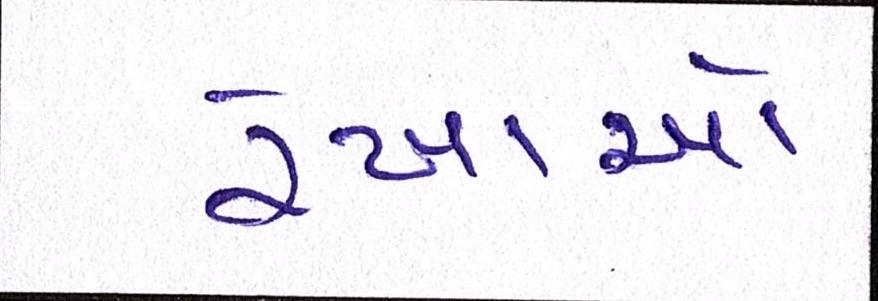 રેખાઓ